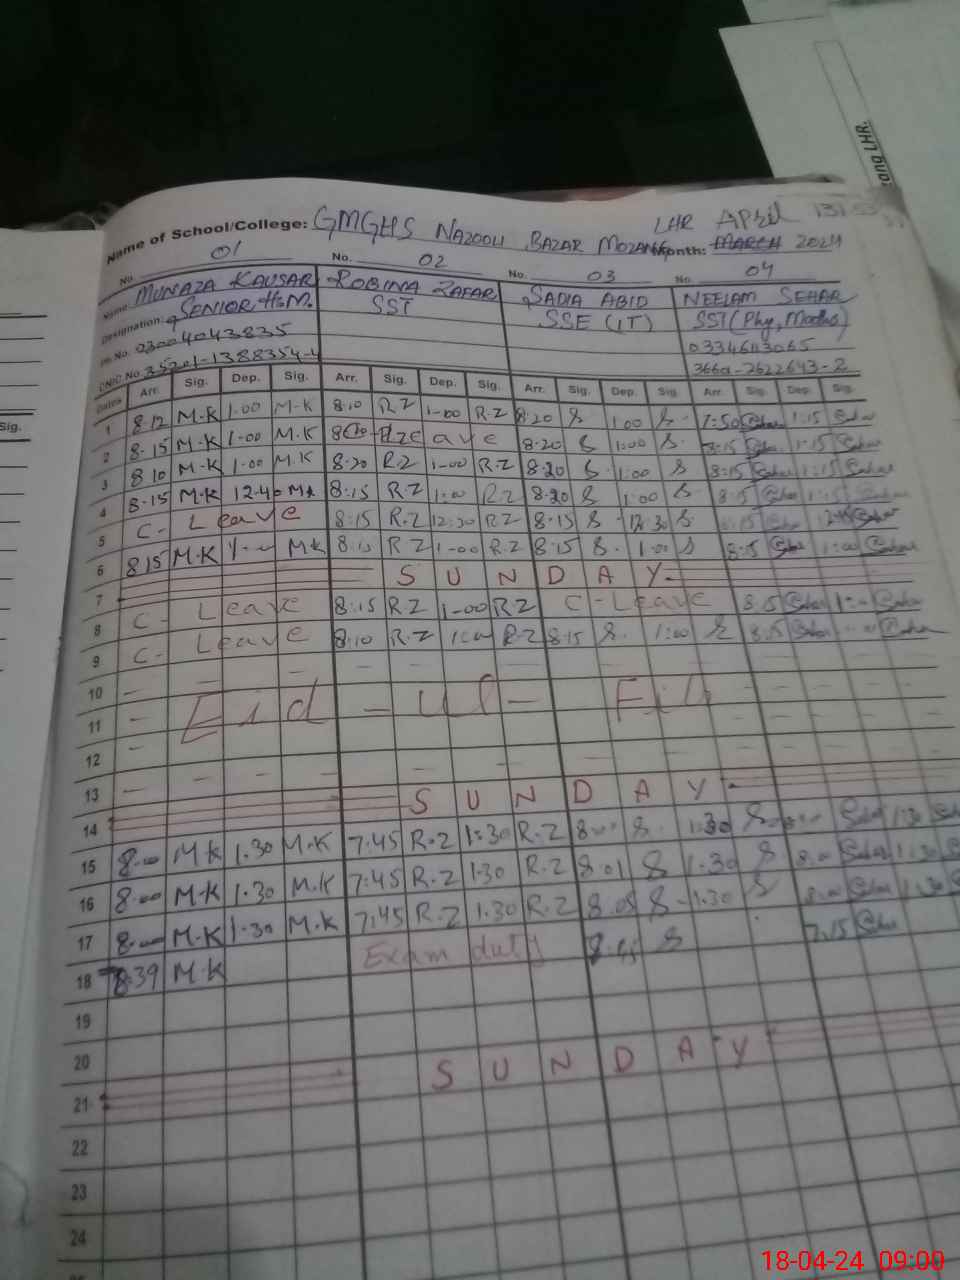 rang LHR.
Name of School/College: GMGHS NAZOOL BAZAR MOZANG LHR April
Month: MARCH 2024
No. 01 No. 02 No. 03 No. 04
Name: MUNAZA KAUSAR ROBINA ZAFAR SADIA ABID NEELAM SEHAR
Designation: SENIOR H.M. SST SSE (IT) SST (Phy, Maths)
Ph No. 03004043835
CNIC No. 35201-1388354-4
Dates Arr. Sig. Dep. Sig. Arr. Sig. Dep. Sig. Arr. Sig. Dep. Sig. Arr. Sig. Dep. Sig.
1 8.12 M.K 1.00 M.K 8.10 R Z 1-00 R.Z 8.20 S 1.00 S 7:50 Sehar 1:15 Sehar
2 8.15 M.K 1.00 M.K Leave 8.20 S 1:00 S. 8:15 Sehar 1:15 Sehar
3 8.10 M.K 1.00 M.K 8.20 R.Z 1-00 R.Z 8.20 S 1:00 S 8:15 Sehar 1:15 Sehar
4 8.15 M.K 12.40 M.K 8:15 R Z 1:00 R.Z 8.20 S 1:00 S 8:15 Sehar 1:15
5 C- Leave 8:15 R.Z 12:30 R Z 8.15 S 12:30 S.
6 8.15 M.K M.K R Z 1-00 R.Z 8.15 S. 1.00 S 8:15 Sehar 1:00 Sehar
7 SUNDAY
8 C- Leave 8:15 R.Z 1-00 R Z C-Leave 8.15 Sehar Sehar
9 C- Leave 8:10 R.Z R.Z 8:15 S. 1:00 S 8:15 Sehar Sehar
10
11 Eid - ul - Fit
12
13
14 SUNDAY
15 8.00 M.K 1.30 M.K 7:45 R.Z 1:30 R.Z 8.00 S. 1.30 S Sehar 1:30 Sehar
16 8.00 M.K 1.30 M.K 7:45 R.Z 1.30 R.Z 8.01 S 1.30 S 8.00 Sehar 1:30
17 8.00 M.K 1.30 M.K 7:45 R.Z 1.30 R.Z 8.05 S 1.30 S 8.00 Sehar 1.30
18 8.39 M.K Exam duty S 7.15 Sehar
19
20
21 SUNDAY
22
23
24
Sig.
18-04-24 09:00